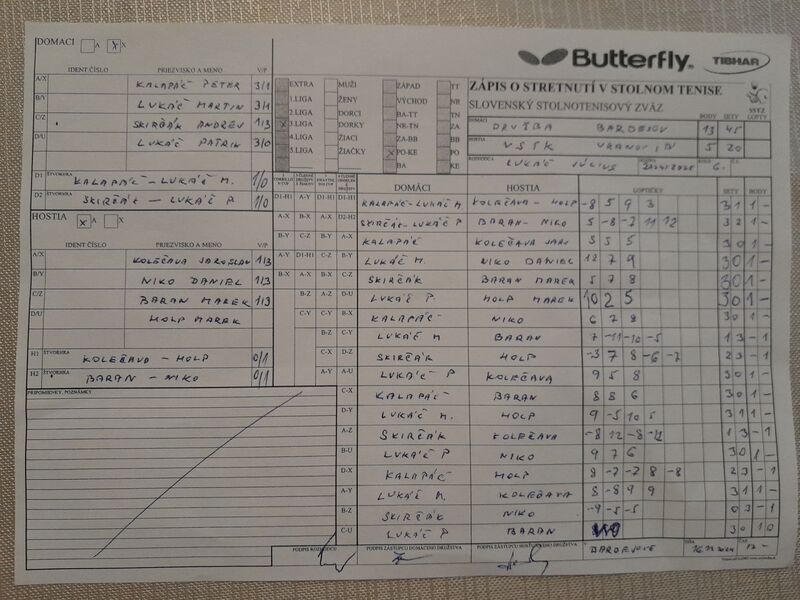 DOMACI A X
Butterfly TIBHAR
ZÁPIS O STRETNUTÍ V STOLNOM TENISE
SLOVENSKÝ STOLNOTENISOVÝ ZVÄZ
SSTZ
IDENT ČÍSLO PRIEZVISKO A MENO V/P
A/X KALAPÁČ PETER 3/1
B/Y LUKÁČ MARTIN 3/1
C/Z SKIRČÁK ANDREJ 1/3
D/U LUKÁČ PATRIK 3/0
D1 ŠTVORHRA KALAPÁČ - LUKÁČ M. 1/0
D2 SKIRČÁK - LUKÁČ P 1/0
EXTRA MUŽI ZÁPAD TT
1.LIGA ŽENY VÝCHOD NR
2.LIGA DORCI BA-TT TN
3.LIGA DORKY NR-TN ZA
4.LIGA ŽIACI ZA-BB BB
5.LIGA ŽIAČKY PO-KE PO
BA KE
DOMÁCI DRUŽBA BARDEJOV 13 45
HOSTIA VSTK VRANOV 5 20
ROZHODCA LUKÁČ JÚLIUS 6.
BODY SETY LOPTY
HOSTIA X A
IDENT ČÍSLO PRIEZVISKO A MENO V/P
A/X KOLEČAVA JAROSLAV 1/3
B/Y NIKO DANIEL 1/3
C/Z BARAN MAREK 1/3
D/U HOLP MAREK
H1 ŠTVORHRA KOLEČAVA - HOLP 0/1
H2 ŠTVORHRA BARAN - NIKO 0/1
PRIPOMIENKY, POZNÁMKY
DOMÁCI HOSTIA LOPTIČKY SETY BODY
D1-H1 A-Y D1-H1 KALAPÁČ-LUKÁČ M. KOLEČAVA - HOLP -8 5 9 3 3 1 1 -
A-X B-X D2-H2 SKIRČÁK-LUKÁČ P BARAN - NIKO 5 -8 -7 11 12 3 2 1 -
B-Y C-Z A-X KALAPÁČ KOLEČAVA JARO 5 5 5 3 0 1 -
A-Y D1-H1 B-Y LUKÁČ M. NIKO DANIEL 12 7 9 3 0 1 -
B-X A-X C-Z SKIRČÁK BARAN MAREK 5 7 8 3 0 1 -
B-Z D-U LUKÁČ P. HOLP MAREK 10 2 5 3 0 1 -
C-Y B-X KALAPÁČ NIKO 6 7 8 3 0 1 -
B-Z C-Y LUKÁČ M BARAN 7 -11 -10 -5 1 3 - 1
C-X D-Z SKIRČÁK HOLP -3 7 8 -6 -7 2 3 - 1
A-Y A-U LUKÁČ P KOLEČAVA 9 5 8 3 0 1 -
C-X KALAPÁČ BARAN 8 8 6 3 0 1 -
D-Y LUKÁČ M. HOLP 9 -5 10 5 3 1 1 -
A-Z SKIRČÁK KOLEČAVA -8 12 -8 -11 1 3 - 1
B-U LUKÁČ P NIKO 9 7 6 3 0 1 -
D-X KALAPÁČ HOLP 8 -7 -7 8 -8 2 3 - 1
A-Y LUKÁČ M. KOLEČAVA 8 -8 9 9 3 1 1 -
B-Z SKIRČÁK NIKO -9 -5 -5 0 3 - 1
C-U LUKÁČ P BARAN 3 0 1 0
PODPIS ROZHODCU PODPIS ZÁSTUPCU DOMÁCEHO DRUŽSTVA PODPIS ZÁSTUPCU HOSŤUJÚCEHO DRUŽSTVA
V BARDEJOVE DŇA 16.11.2024 ČAS